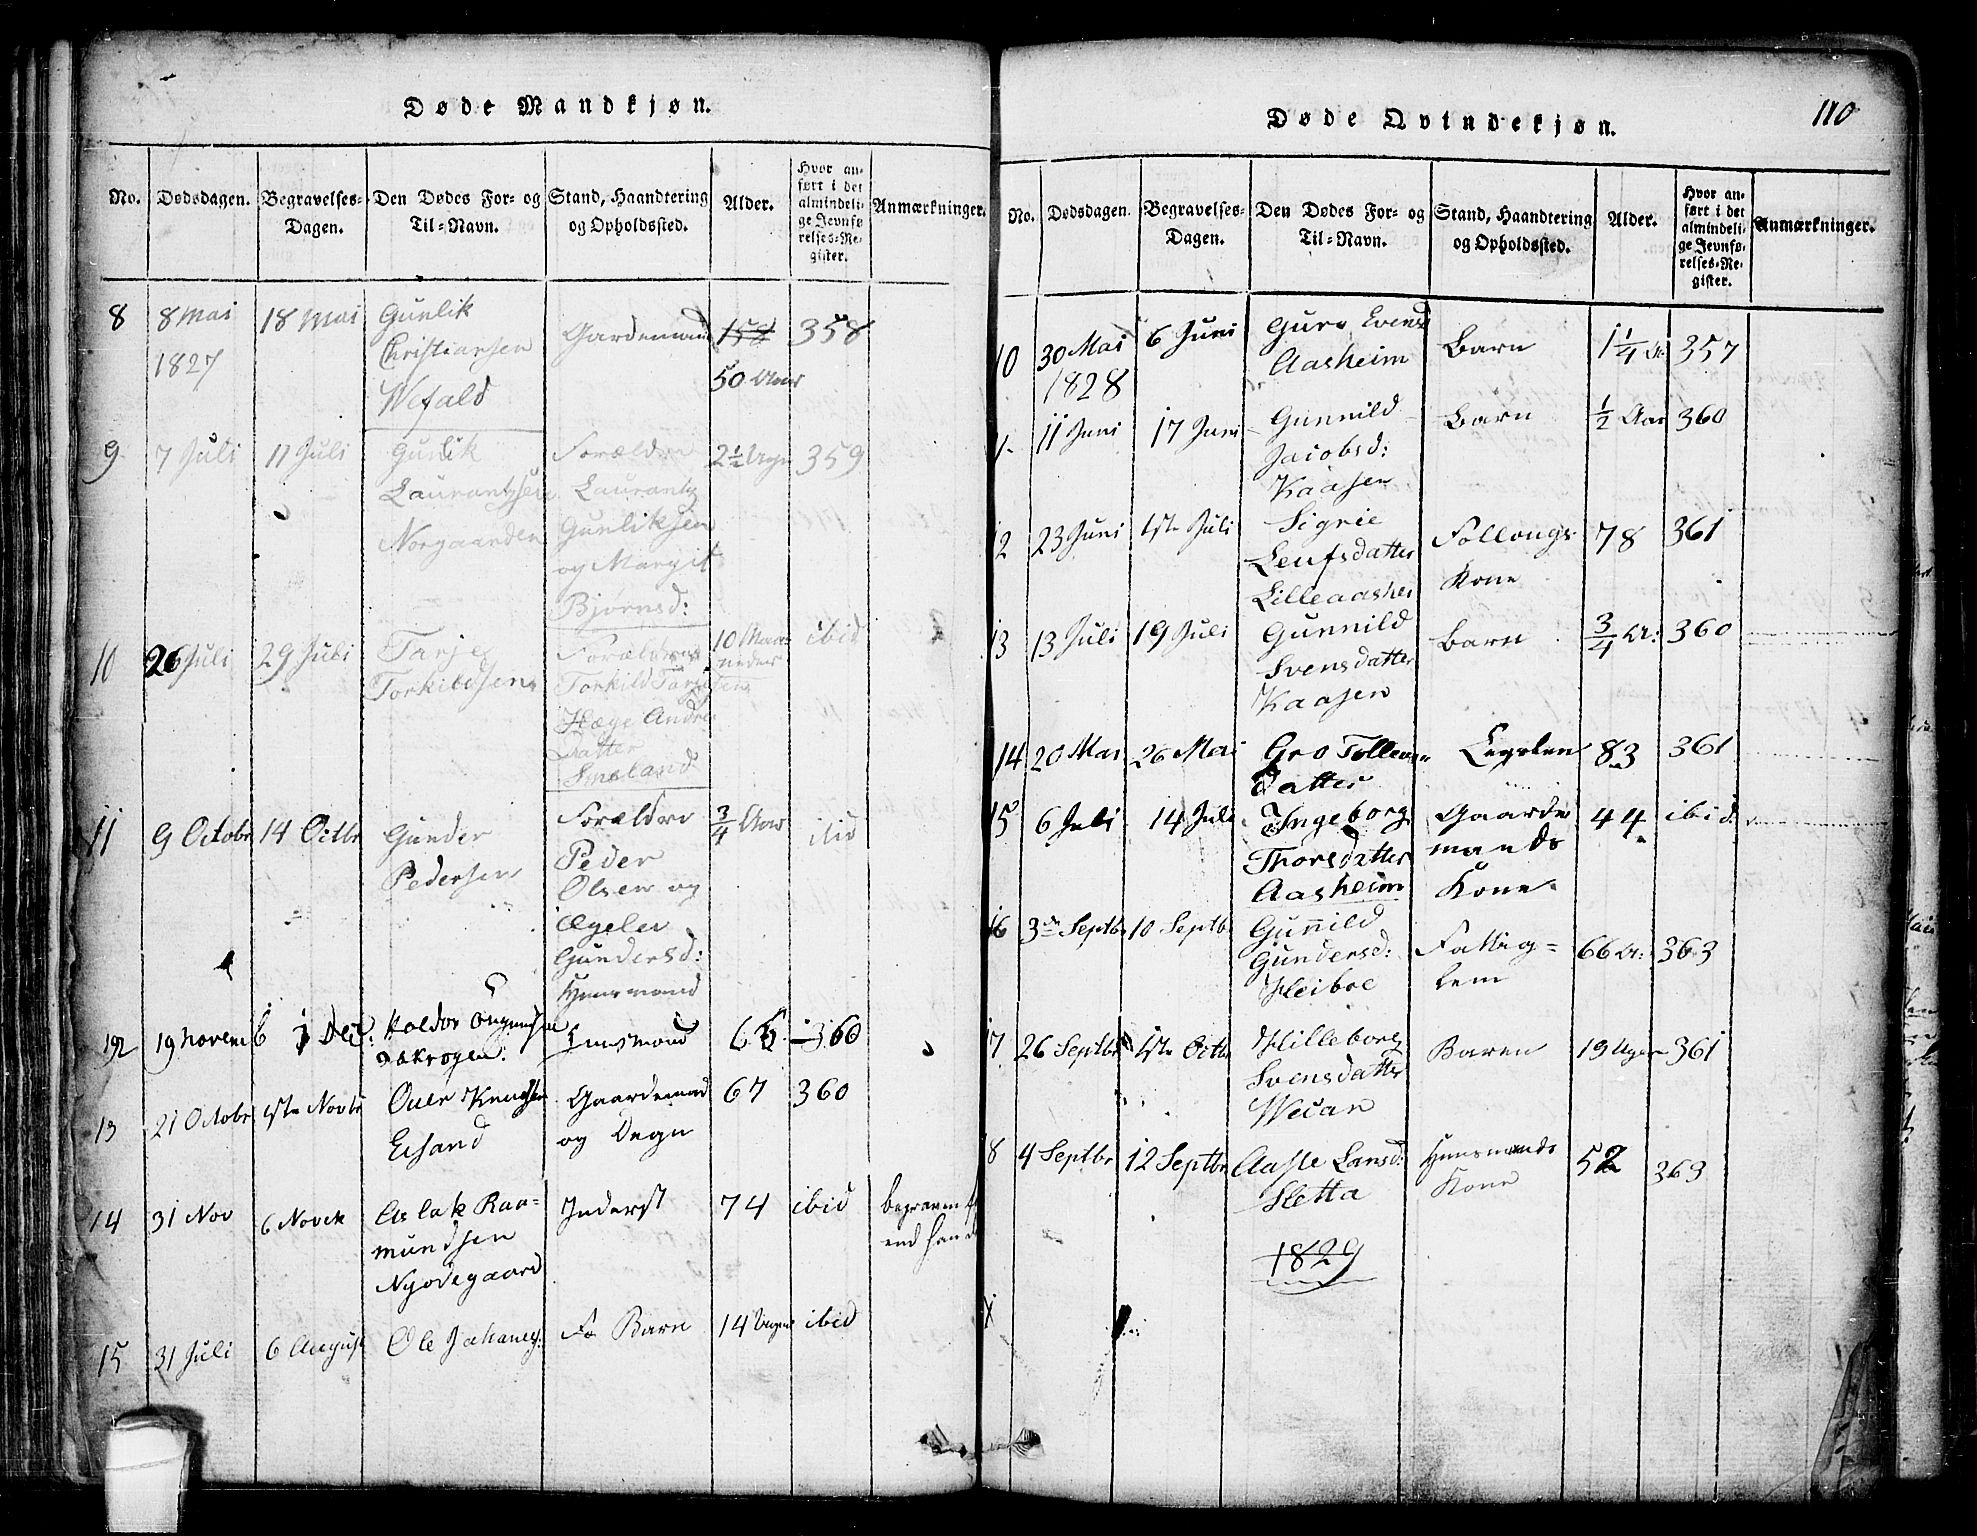 Døde Mandkjøn.
No. Dødsdagen. Begravelses-Dagen. Den Dødes For- og Til-Navn. Stand, Haandtering og Opholdssted. Alder. Hvor anført i det almindelige Jevnførelses-Register. Anmærkninger.
8 8 Mai 18 Mai Gunlik Gardemand 358
1827 Christiansen 50 Aar
Wefald
9 7 Juli 11 Juli Gunlik Forældre 2½ Uge 359
Laurantzsen Laurantz
Norgaarden Gunliksen
og Margit
Bjørnsd:
10 26 Juli 29 Juli Tarje Forældre 10 Maa- ibid
Torkildsen Torkild Tarjesen neder
Hæge Andre
Datter
Smoland
11 9 Octobr 14 Octbr Gunder Forældre ¾ Aar ibid
Pedersen Peder
Olsen og
Ægelev
Gundersd:
Huusmand
12 19 novemb 1 Dec: Haldor Huusmand 66 360
13 21 Octobr 1ste Novbr Oluv Knudsen Gaardemand 67 360
Eisand og Degn
14 31 Nov 6 Novbr Aslak Raa- Inderst 74 ibid
mundsen
Nyodegaard
15 31 Juli 6 August Ole Johanes: Barn 14 Uger ibid
Døde Qvindekjøn. 110
No. Dødsdagen. Begravelses-Dagen. Den Dødes For- og Til-Navn. Stand, Haandtering og Opholdssted. Alder. Hvor anført i det almindelige Jevnførelses-Register. Anmærkninger.
10 30 Mai 6 Juni Guro Evensd Barn 1¼ A: 357
1828 Aasheim
11 Juni 17 Juni Gunnild Barn ½ Aar 360
Jacobsd:
Kaasen
12 23 Juni 1ste Juli Sigrie Follougs 78 361
Leufsdatter Kone
Lilleaashei
13 13 Juli 19 Juli Gunnild Barn ¾ A: 360
Svensdatter
Kaasen
14 20 Mai 26 Mai Gro Tolleve Legslem 83 361
Datter
15 6 Juli 14 Juli Ingeborg Gaarde 44 ibid:
Thorsdatter mands
Aasheim Kone
16 3de Septbr 10 Septbr Gunnild Fattig= 66 A: 363
Gundersd: lem
Heiboe
17 26 Septbr 1ste Octbr Hilleborg Baren 19 Uger 361
Svensdatter
Wecan
18 4 Septbr 12 Septbr Aasle Larsd: Huusmands 52 363
Sletta Kone
1829